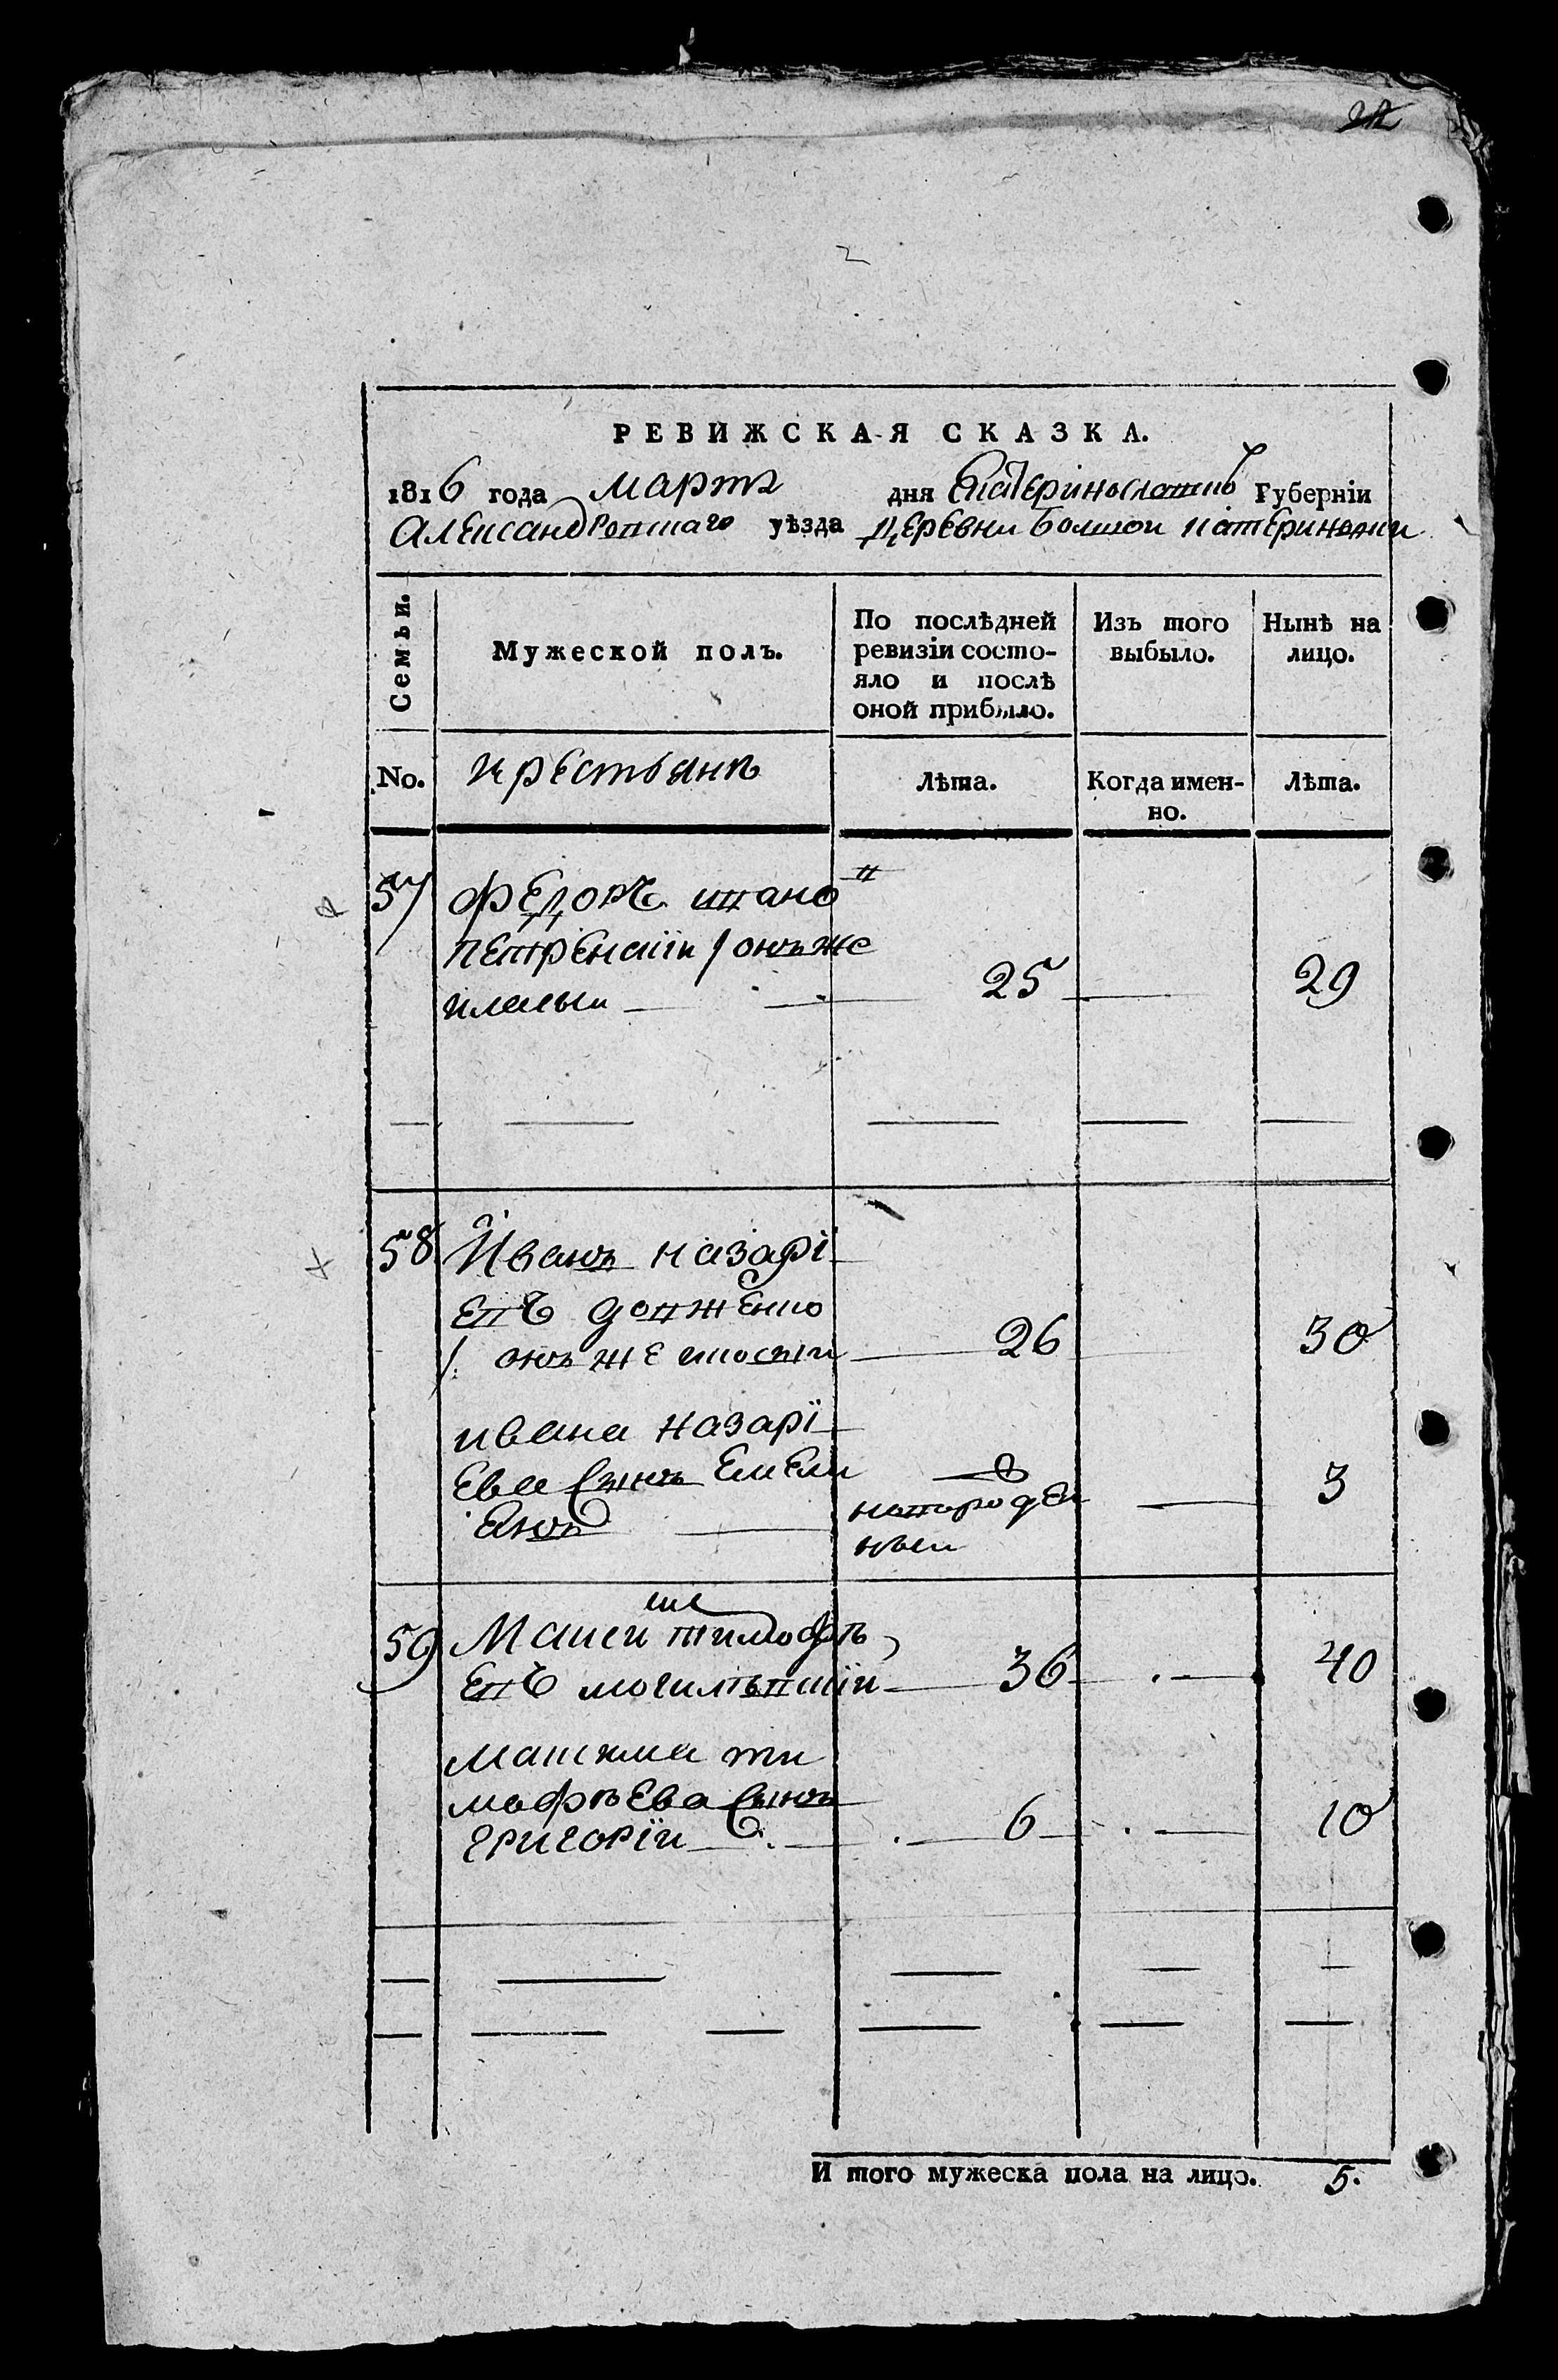 22
2
РЕВИЖСКАЯ СКАЗКА.
1816 года мартъ дня Екатеринославско Губерніи
Александровскаго уѣзда деревни Болшои катеринонки
Семьи.
Мужеской полъ.
По послѣдней ревизіи состо-
яло и послѣ
оной прибыло.
Изъ того
выбыло.
Нынѣ на
лицо.
No.
крестьянѣ
Лѣта.
Когда имен-
но.
Лѣта.
57 федоръ ивано в
петренскіи / онъ же
25 29
58 Иванъ назарі
евъ долженко
/: онъ же 26 30
ивана назарі
ева сынъ емели
янъ новороден
ныи 3
59 Максим тимофѣ
евъ могилѣвскіи 36 40
максима ти
мофѣева сынъ
григоріи 6 10
И того мужеска пола на лицо. 5.